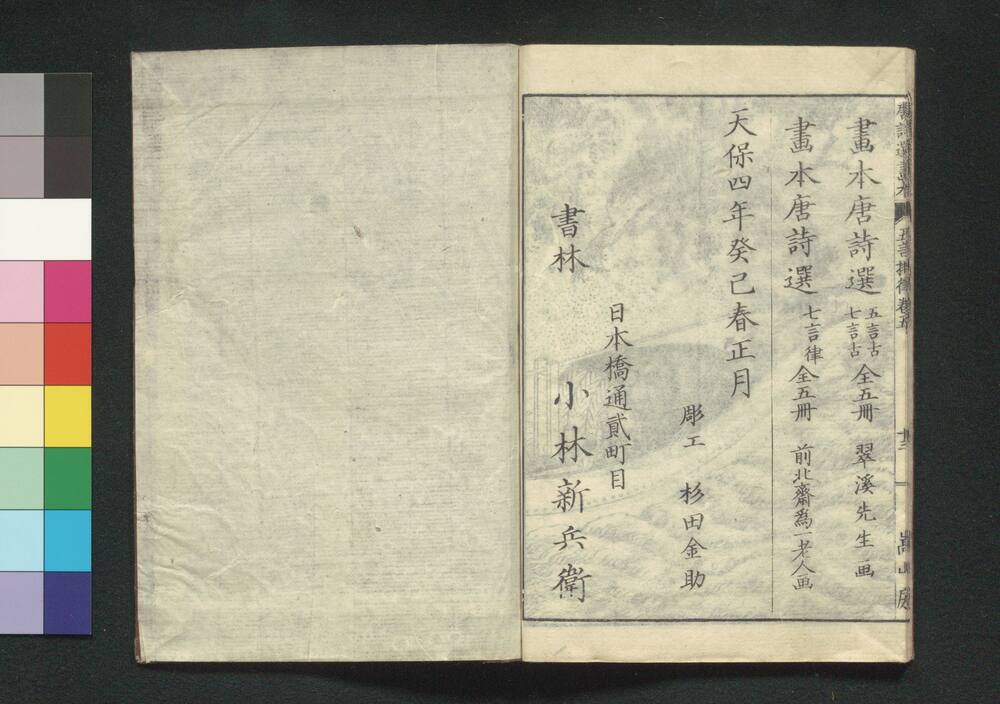 唐詩選畫本 五言排律卷五 十三 嵩山房
畫本唐詩選 五言古 七言古 全五冊 翠溪先生画
畫本唐詩選 七言律 全五冊 前北齋為一老人画
天保四年癸巳春正月
彫工 杉田金助
日本橋通貳町目
書林 小林新兵衛